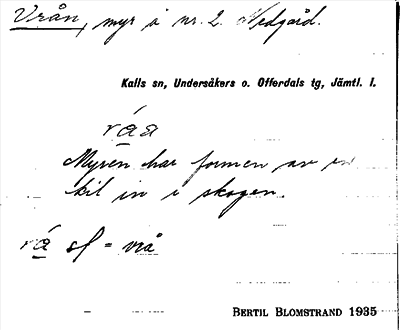 Vrån, myr å nr. 2 Nedgård.
Kalls sn, Undersåkers o. Offerdals tg, Jämtl. l.
råa
Myren har formen av en
kil in i skogen.
rå sf = vrå
BERTIL BLOMSTRAND 1935